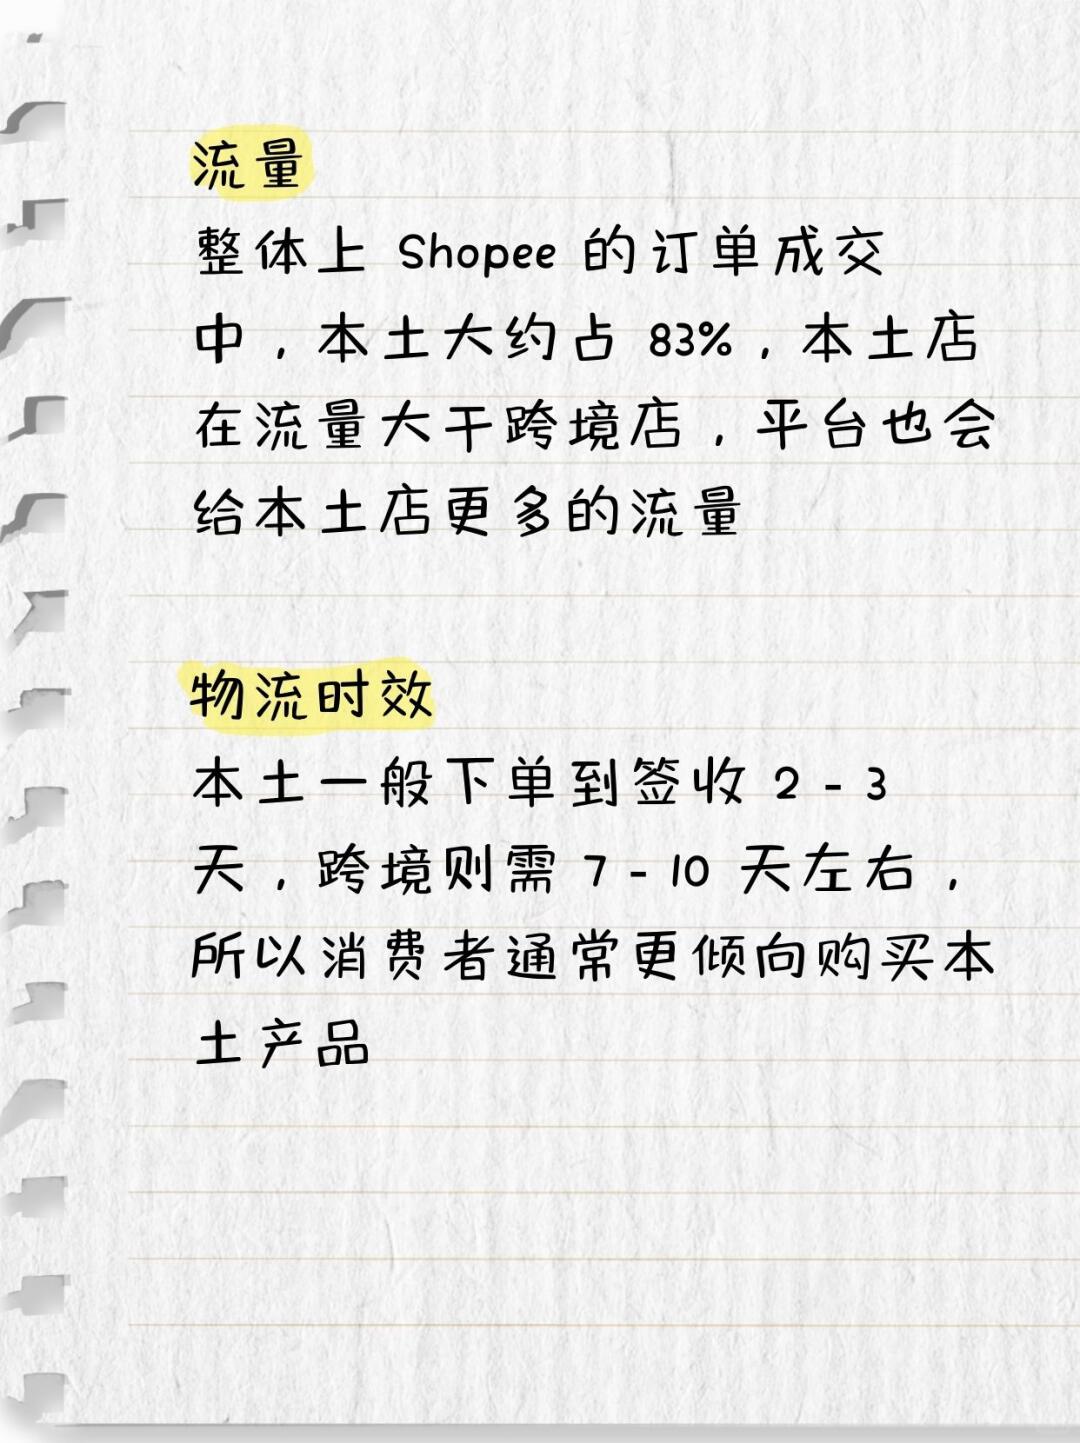 流量
整体上 Shopee 的订单成交
中，本土大约占 83%，本土店
在流量大于跨境店，平台也会
给本土店更多的流量
物流时效
本土一般下单到签收 2 - 3
天，跨境则需 7 - 10 天左右，
所以消费者通常更倾向购买本
土产品